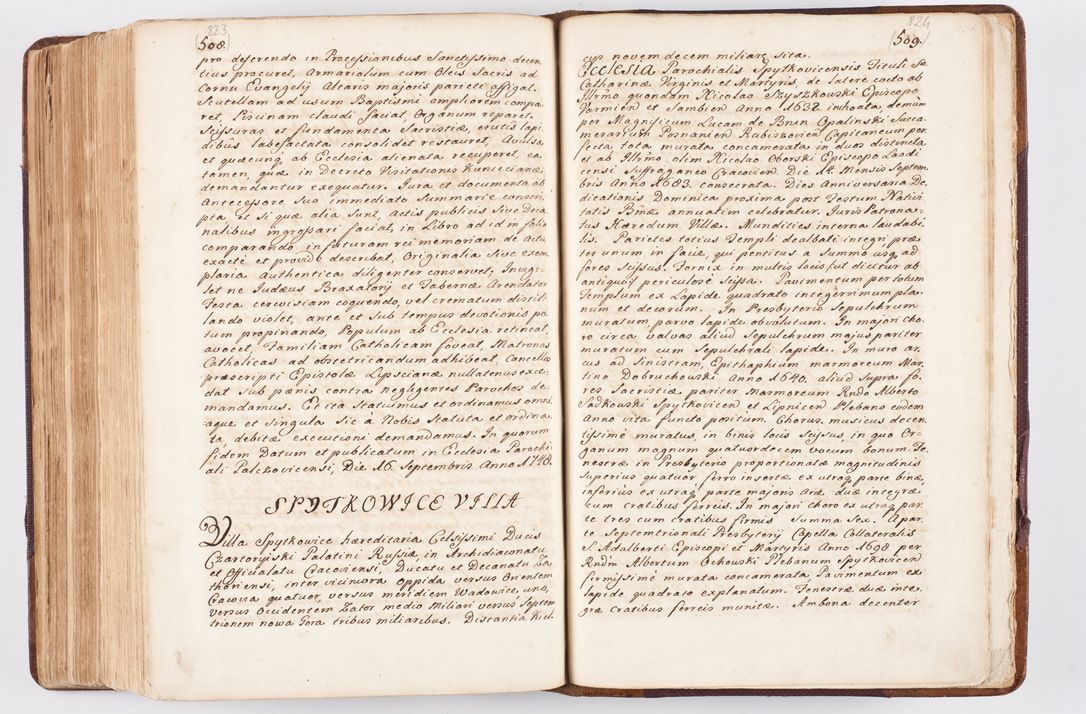 823
508.
pro deferendo in Processionibus Sanctissimo decen
tius procuret, Armariolum cum Oleis Sacris ad
Cornu Evangelij Altaris majoris parieti affigat.
Scutellam ad usum Baptismi ampliorem compa
ret, Piscinam claudi faciat, Organum reparet.
Scissuras et fundamenta Sacristiæ, erutis lapi
dibus labefactata consolidet restauret, Avulsa
et quæcunq ab Ecclesia alienata recuperet, ea
tamen, quæ in Decreto Visitationis Kunicianæ
demandantur exequatur. Jura et documenta ab
Antecessore Suo immediato Summarie conscri
pta et Si quæ alia Sunt, Actis publicis Sive Deca
nalibus ingrossari faciat, in Libro ad id in folio
comparando in futuram rei memoriam de Actu
exactè et providè describat, Originalia Sive exem
plaria Authentica diligenter conservet, Invigi
let ne Judæus Braxatorij et Tabernæ Arendator
Festa cerevisiam coquendo, vel crematum distil
lando violet, ante et Sub tempus devotionis po
tum propinando, Populum ab Ecclesia retineat,
avocet, Familiam Catholicam foveat, Matronas
Catholicas ad obstetricandum adhibeat, Cancellos
præscripti Epistolæ Lipscianæ nullatenus exce
dat Sub pœnis contra negligentes Parochos de
mandamus. Et ita Statuimus et ordinamus omni
aque et Singula Sic a Nobis Statuta et ordina
ta debitæ executioni demandamus. In quorum
fidem Datum et publicatum in Ecclesia Parochi
ali Palczovicensi, Die 16 Septembris Anno 1748.
SPYTKOWICE VILLA
Villa Spytkowice hæreditaria Celsissimi Ducis
Czartoryiski Palatini Russiæ in Archidiaconatu
et Officialatu Cracoviensi, Ducatu et Decanatu Za
thoriensi, inter viciniora oppida versus Orientem
Cracovia quatuor, versus meridiem Wadowice uno,
versus Occidentem Zator medio Miliari versus Septem
trionem nowa Gora tribus miliaribus. Distantia Kiel.
824
509.
cijs novem decem miliare sita.
Ecclesia Parochialis Spytkovicensis Tituli Sæ
Catharinæ Virginis et Martyris, de latere cocto ab
Illrmo quondam Nicolao Szyszkowski Episcopo
Varmien et Sambien Anno 1632 inchoata demum
per Magnificum Lucam de Bnin Opalinski Succa
merarium Posnanien Rubiszovien Capitaneum per
fecta tota murata concamerata in duas distincta
et ab Illrmo olim Nicolao Oborski Episcopo Laodi
censi Suffraganeo Cracovien Die 12 Mensis Septem
bris Anno 1683. consecrata. Dies Anniversaria De
dicationis Dominica proxima post Festum Nativi
tatis Bmæ annuatim celebratur. Juris Patrona
tus Hæredum Villæ. Mundities interna laudabi
lis. Parietes totius Templi dealbati integri, præ
ter unum in facie, qui penitus a summo usq ad
fores Scissus. Fornix in multis locis fut dicitur ab
antiquo periculose scissa. Pavimentum per totum
Templum ex Lapide quadrato integerrimum pla
num et decorum. In Presbyterio Sepulchrum
muratum, parvo lapide obvolutum. In majori cho
ro circa valvas aliud Sepulchrum majus pariter
muratum cum Sepulchrali lapide. In muro ar
cus ad Sinistram, Epithaphium marmoreum Mar
tino Dobruchowski, Anno 1640. aliud Supra fo
res Sacristiæ pariter Marmoreum Rndo Alberto
Sadkowski Spytkovicen et Lipnicen Plebano eodem
Anno vita functo positum. Chorus musicus decen
tissime muratus, in binis locis Scissus, in quo Or
ganum magnum quatuordecem vocum bonum. Fe
nestræ in Presbyterio proportionatæ magnitudinis
Superius quatuor ferro insertæ ex utraq parte binæ,
inferius ex utraq parte majoris Aræ duæ integræ
cum cratibus ferreis. In majori choro ex utraq par
te tres cum cratibus firmis Summa Sex. A par
te Septemtrionali Presbyterij Capella Collateralis
S Adalberti Episcopi et Martyris Anno 1698 per
Rndm Albertum Ochowski Plebanum Spytkovicen
firmissime murata concamerata. Pavimentum ex
lapide quadrato explanatum. Fenestræ duæ inte
græ cratibus ferreis munitæ. Ambona decenter